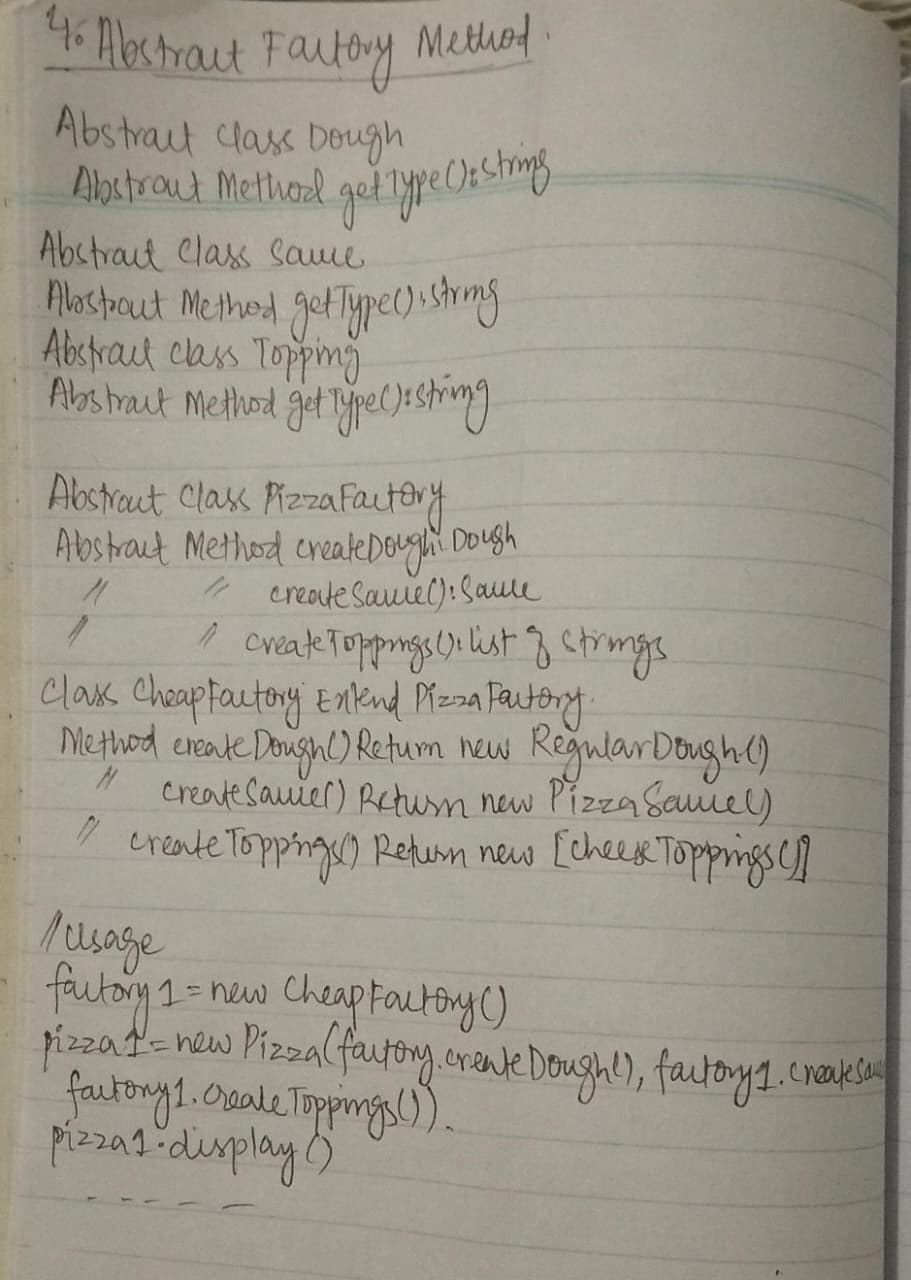 4. Abstract Factory Method.
Abstract Class Dough
Abstract Method getType():string
Abstract Class Sauce
Abstract Method getType():string
Abstract class Topping
Abstract Method getType():string
Abstract Class PizzaFactory
Abstract Method createDough:Dough
// // createSauce():Sauce
// // createToppings():list of strings
Class CheapFactory Extend PizzaFactory.
Method createDough() Return new RegularDough()
// createSauce() Return new PizzaSauce()
// createToppings() Return new [cheeseToppings()]
// Usage
factory1 = new CheapFactory()
pizza1 = new Pizza(factory.createDough(), factory1.createSau
factory1.createToppings()).
pizza1.display()
- - - - -